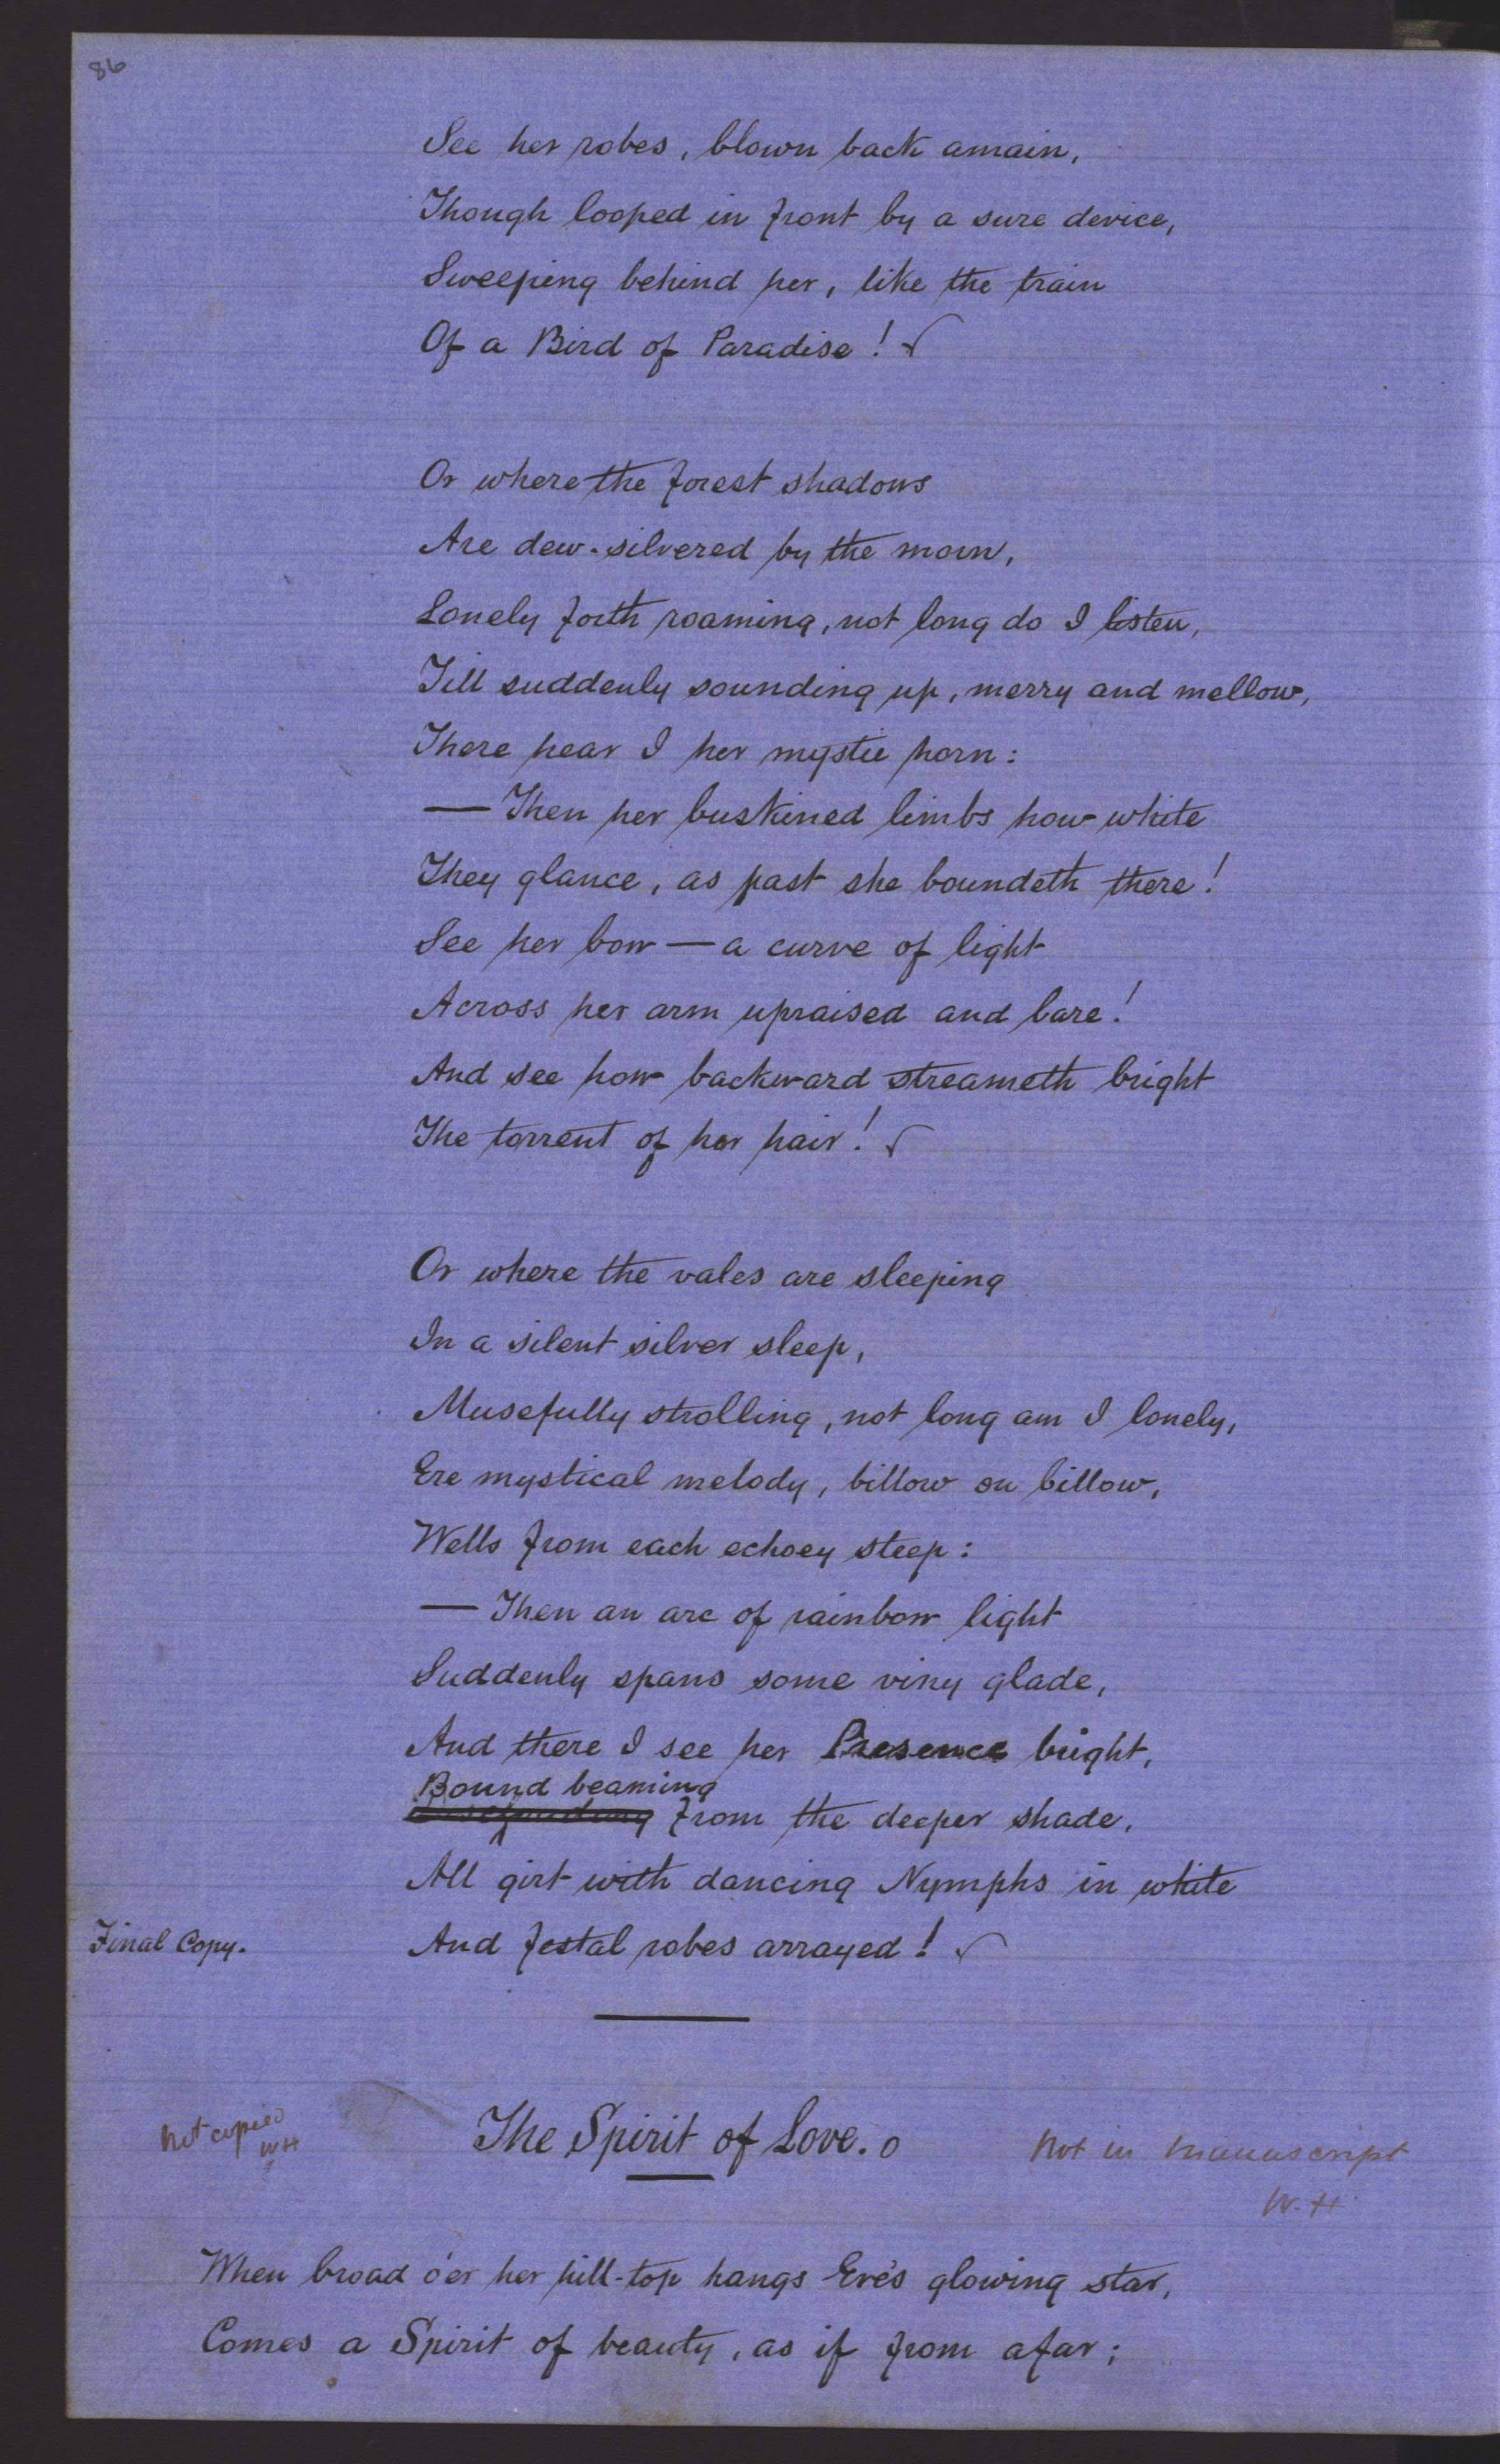 86
See her robes, blown back amain,
Though looped in front by a sure device,
Sweeping behind her, like the train
Of a Bird of Paradise! √
Or where the forest shadows
Are dew-silvered by the morn,
Lonely forth roaming, not long do I listen,
Till suddenly sounding up, merry and mellow,
There hear I her mystic horn:
— Then her buskined limbs how white
They glance, as past she boundeth there!
See her bow — a curve of light
Across her arm upraised and bare!
And see how backward streameth bright
The torrent of her hair! √
Or where the vales are sleeping
In a silent silver sleep,
Musefully strolling, not long am I lonely,
Ere mystical melody, billow on billow,
Wells from each echoey steep:
— Then an arc of rainbow light
Suddenly spans some viny glade,
And there I see her Presence bright,
Bound beaming
from the deeper shade,
All girt with dancing Nymphs in white
Final Copy. And festal robes arrayed! √
Not copied
WH
The Spirit of Love. o
Not in Manuscript
W. H.
When broad o'er her hill-top hangs Eve's glowing star,
Comes a Spirit of beauty, as if from afar;